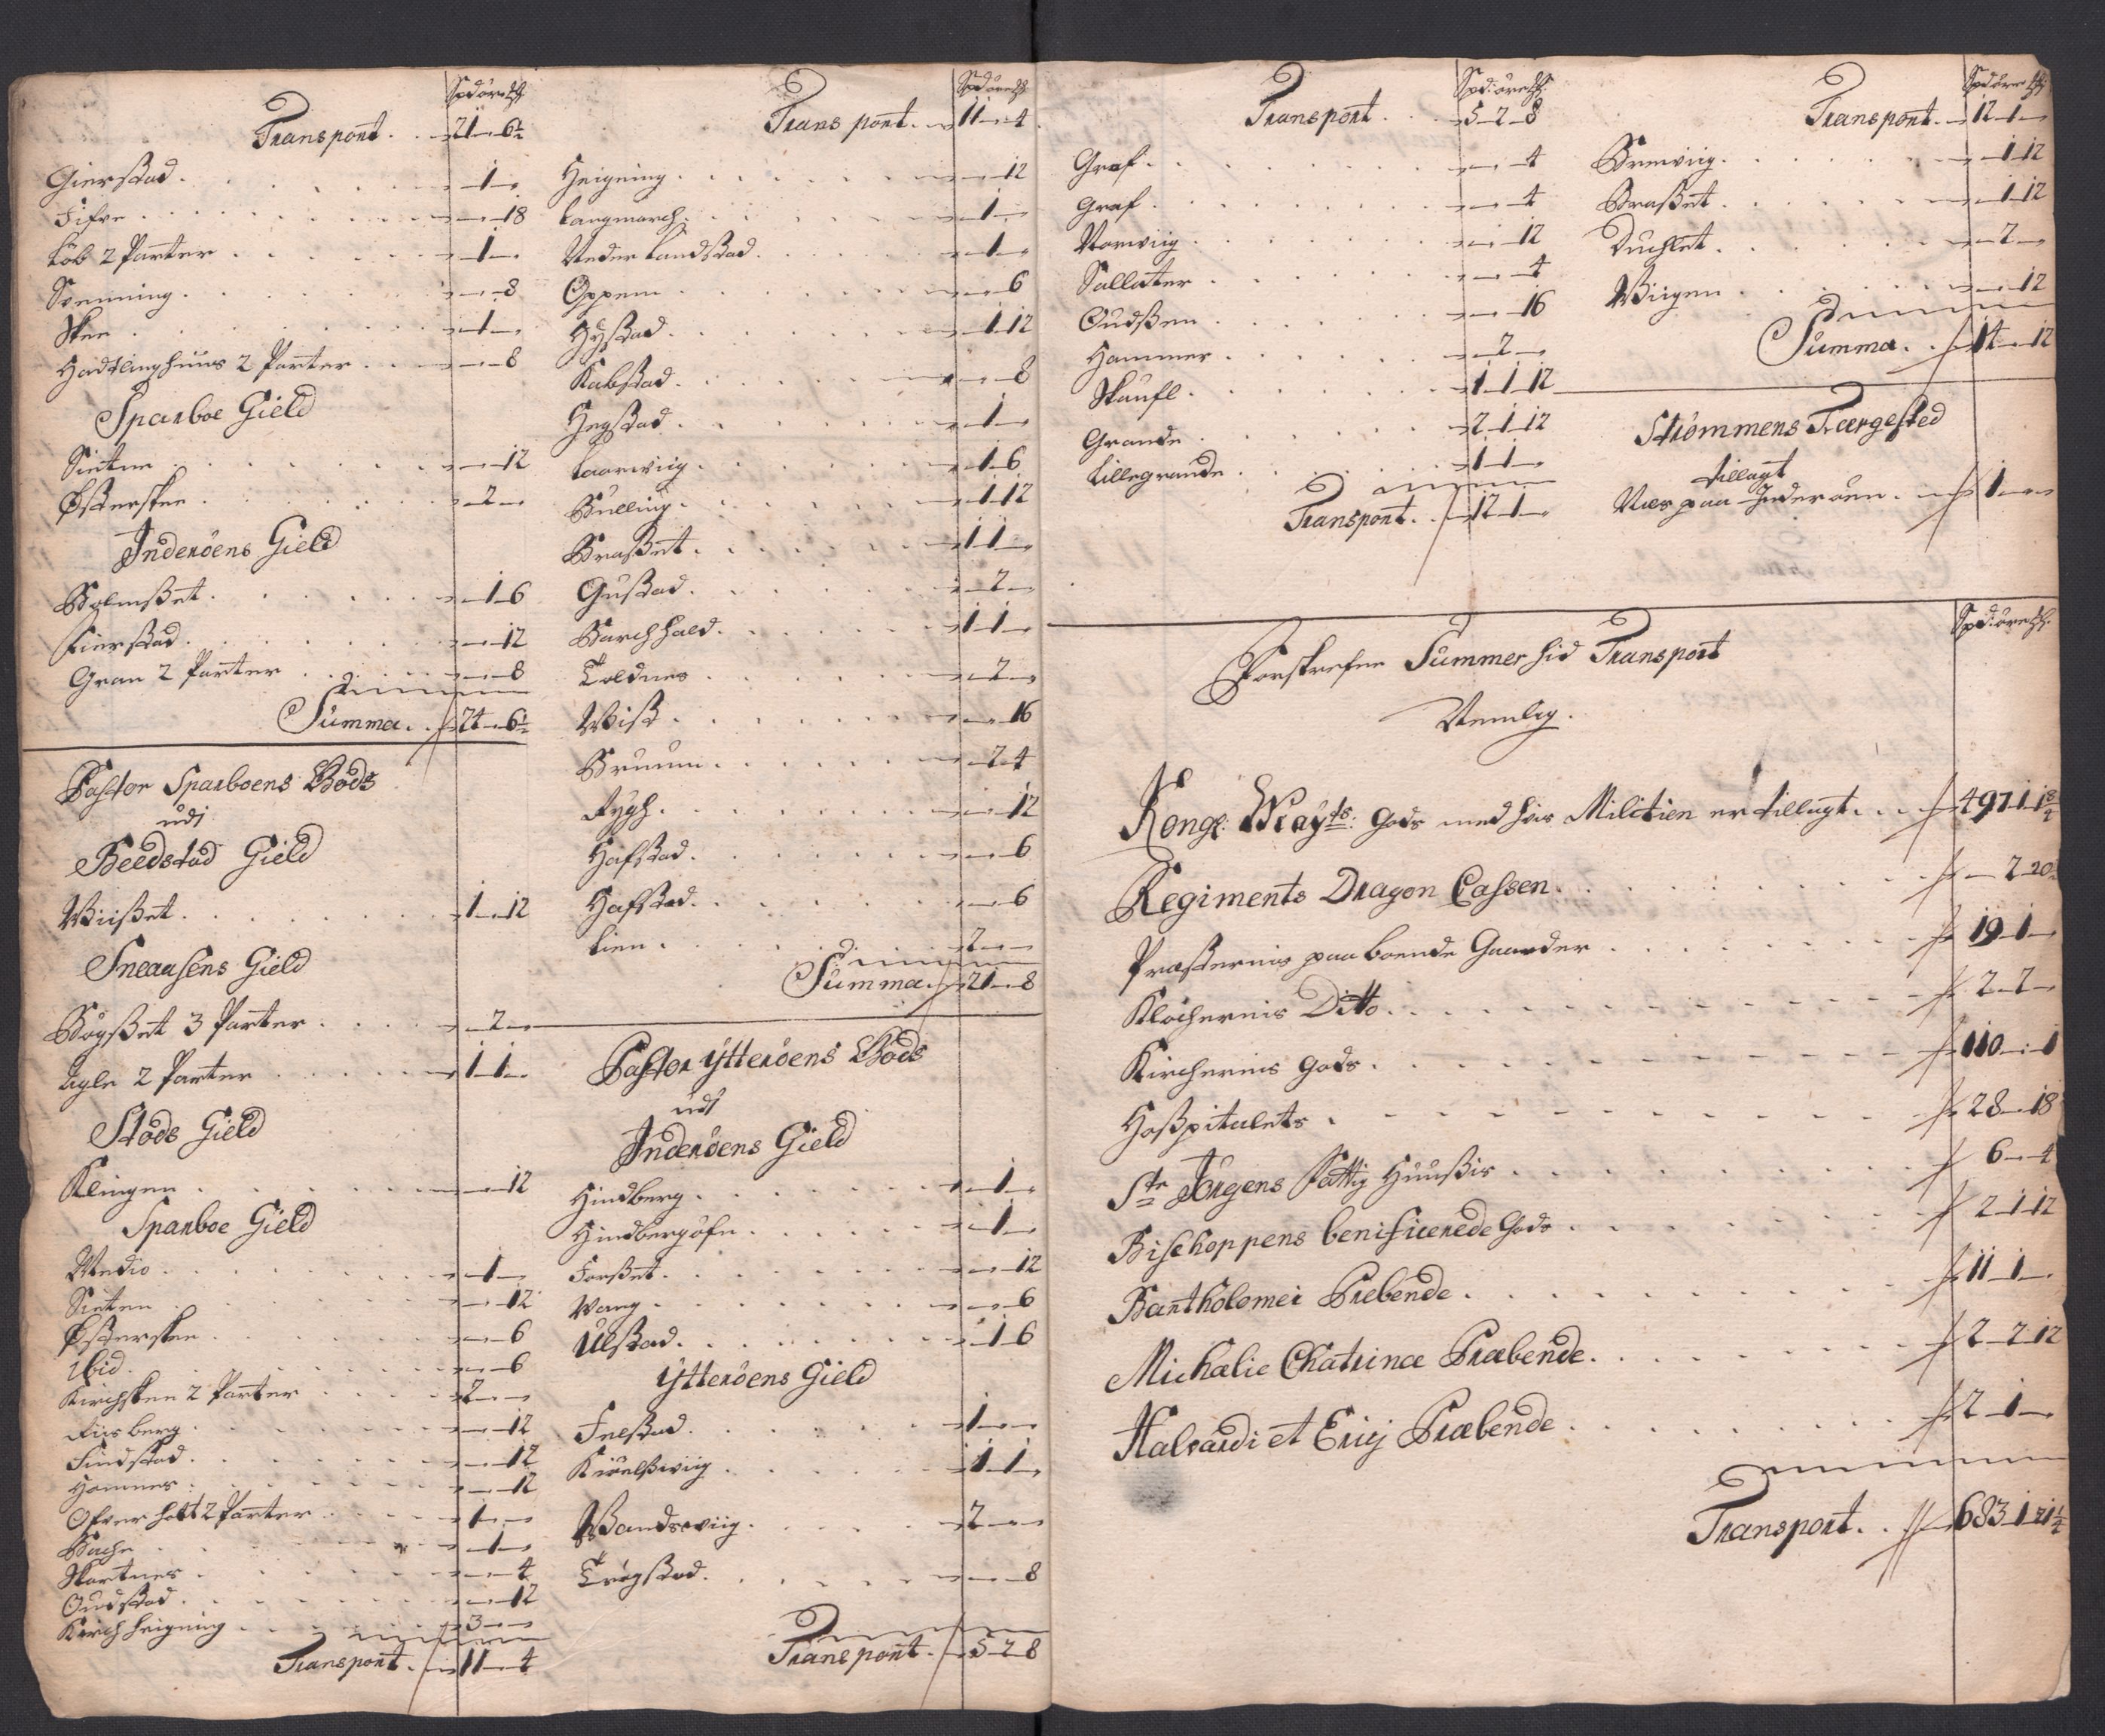 Spd øre ₰
Transport . . 21 — 6½
Gierstad . . . — 1 —
Fifve . . . — — 18
Løb 2 Parter . . . — 1 —
Svenning . . . — — 8
Skee . . . — 1 —
Hadtlinghuus 2 Parter . . — — 8
Sparboe Gield
Sietne . . . — — 12
Østerskee . . . — 2 —
Inderöens Gield
Bolmsset . . . — 1 6
Kierstad . . . — — 12
Gran 2 Parter . . . — — 8
Summa . . 24 — 6½
Pastor Sparboens Bods
udi
Beedstad Gield
Wiisset . . . 1 — 12
Sneaasens Gield
Bøgsset 3 Parter . . . — 2 —
Agle 2 Parter . . . 1 1 —
Stods Gield
Klingen . . . — — 12
Sparboe Gield
Medio . . . — 1 —
Sieten . . . — — 12
Østerskee . . . — — 6
Ibid . . . — — 6
Kirchskee 2 Parter . . . 2 — —
Fiisberg . . . — — 12
Findstad . . . — — 12
Hammer . . . — — 12
Ofver hatt 2 Parter . . . 1 — —
Bache . . . — 1 —
Skartnes . . . — — 4
Oudstad . . . — — 12
Kirch heigning . . . 3 — —
Transport . 11 — 4
Spd øre ₰
Transport . 11 — 4
Heigning . . . — — 12
Langmarch . . . — 1 —
Neder Landstad . . . — 1 —
Oppem . . . — — 6
Hÿstad . . . — 1 12
Kabstad . . . — — 8
Hegstad . . . — 1 —
Laarwiig . . . — 1 6
Bulling . . . — 1 12
Brasset . . . 1 1 —
Gustad . . . — 2 —
Barchhald . . . 1 1 —
Toldnes . . . — 2 —
Wist . . . — — 16
Bruum . . . — 2 4
Rygh . . . — — 12
Hafstad . . . — — 6
Hafstad . . . — — 6
Lien . . . 2 — —
Summa . 21 — 8
Pastor Ytteröens Bods
udi
Inderöens Gield
Hindberg . . . — 1 —
Hindbergøfn . . . — 1 —
Forsset . . . — — 12
Wang . . . — — 6
Ulstad . . . — 1 6
Ytteröens Gield
Felstad . . . 1 — —
Kiøelsswiig . . . 1 1 —
Wandswiig . . . 2 — —
Trøgstad . . . — — 8
Transport . 5 2 8
Spd: øre ₰
Transport . . 5 2 8
Graf . . . — — 4
Graf . . . — — 4
Norwiig . . . — — 12
Sallater . . . — — 4
Oudssen . . . — — 16
Hammer . . . — 2 —
Skaufl . . . 1 1 12
Grande . . . 2 1 12
Lillegrande . . . 1 1 —
Transport . . 12 1 —
Spd: øre ₰
Transport . 12 1 —
Brewiig . . . — 1 12
Brasset . . . — 1 12
Duchlet . . . — 2 —
Wiigen . . . — — 12
Summa . . 14 — 12
Strömmens Færgested
tillagt
Næs paa Inderöen . . 1 — —
Spd: øre ₰
Forskrefne Summer hid Transport
Nemlig.
Kongl: Mayts: Gods med hvis Militien er tillagt . . . 497 1 18½
Regiments Dragon Cassen . . . — 2 20
Præsternis paa boende Gaarder . . . 19 1 —
Klochernis Ditto . . . 2 2 —
Kirchernis Gods . . . 110 — 1
Hosspitalets . . . 28 — 18
Ste Jörgens Fattig Huussis . . . 6 — 4
Bischoppens benificerede Gods . . . 2 1 12
Bartholomei Prebende . . . 11 1 —
Michælie Chatrinæ Præbende . . . 2 2 12
Halvardi et Erici Præbende . . . 2 1 —
Transport . . 683 1 21½